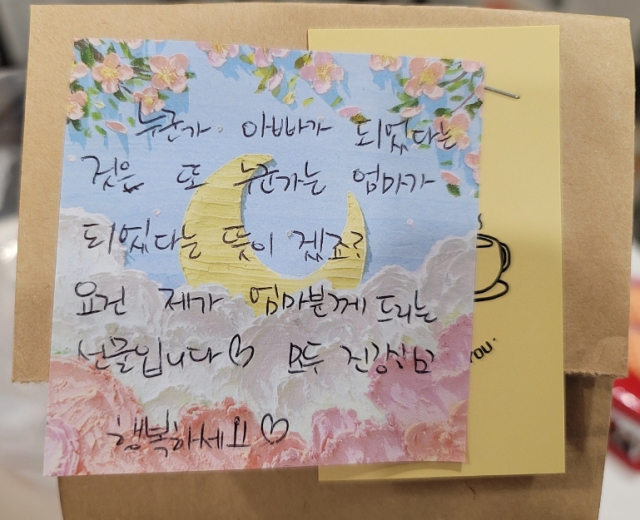 누군가 아빠가 되었다는
것은 또 누군가는 엄마가
되었다는 뜻이 겠죠?
요건 제가 엄마분께 드리는
선물입니다♡ 모두 건강하시고
행복하세요♡
YOU.